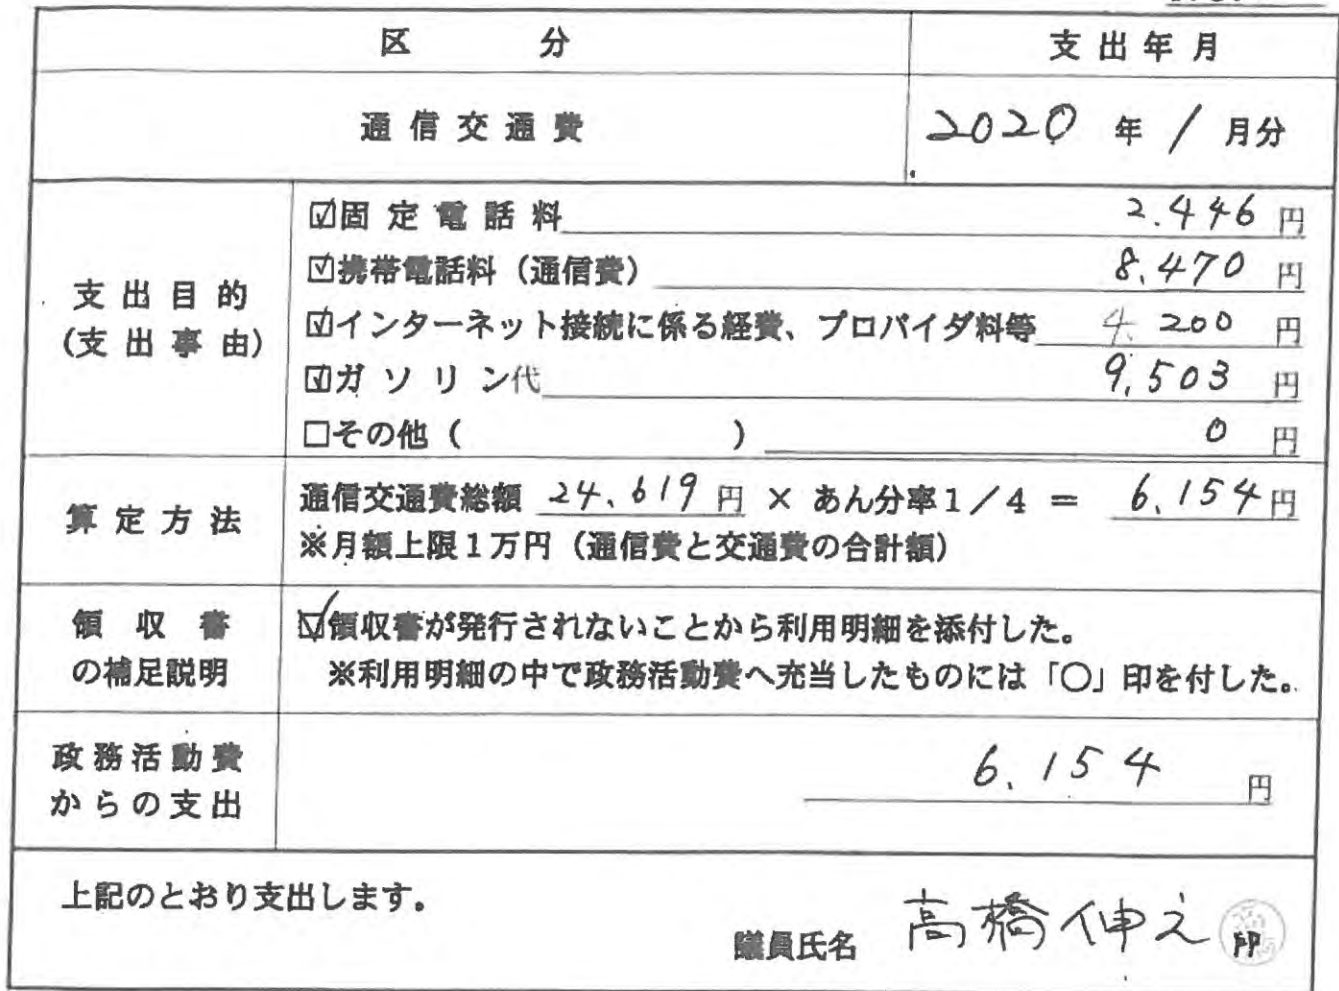 区 分 支出年月
通信交通費 2020 年 1 月分
支出目的
(支出事由)
☑固定電話料 2.446 円
☑携帯電話料（通信費） 8.470 円
☑インターネット接続に係る経費、プロバイダ料等 4.200 円
☑ガソリン代 9,503 円
□その他（ ） 0 円
算定方法
通信交通費総額 24,619 円 × あん分率1／4 ＝ 6,154円
※月額上限1万円（通信費と交通費の合計額）
領収書
の補足説明
☑領収書が発行されないことから利用明細を添付した。
※利用明細の中で政務活動費へ充当したものには「○」印を付した。
政務活動費
からの支出
6.154 円
上記のとおり支出します。
議員氏名 高橋伸之 印